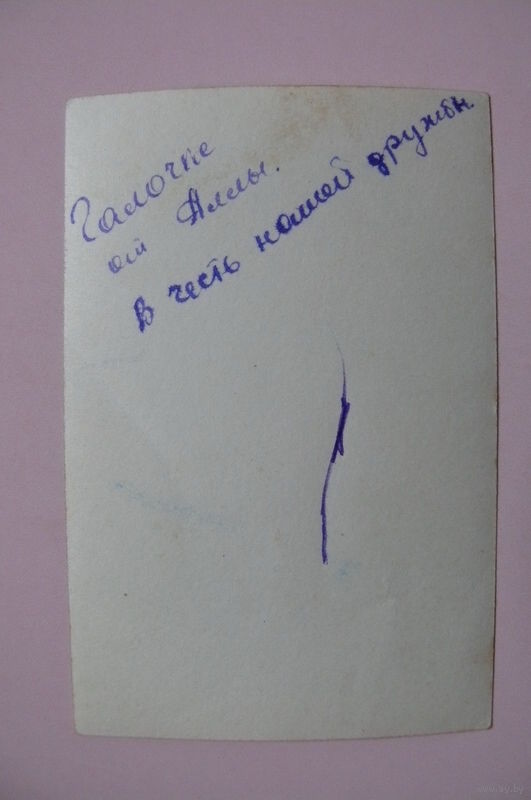 Галочке
от Аллы.
В честь нашей дружбы.
www.ay.by